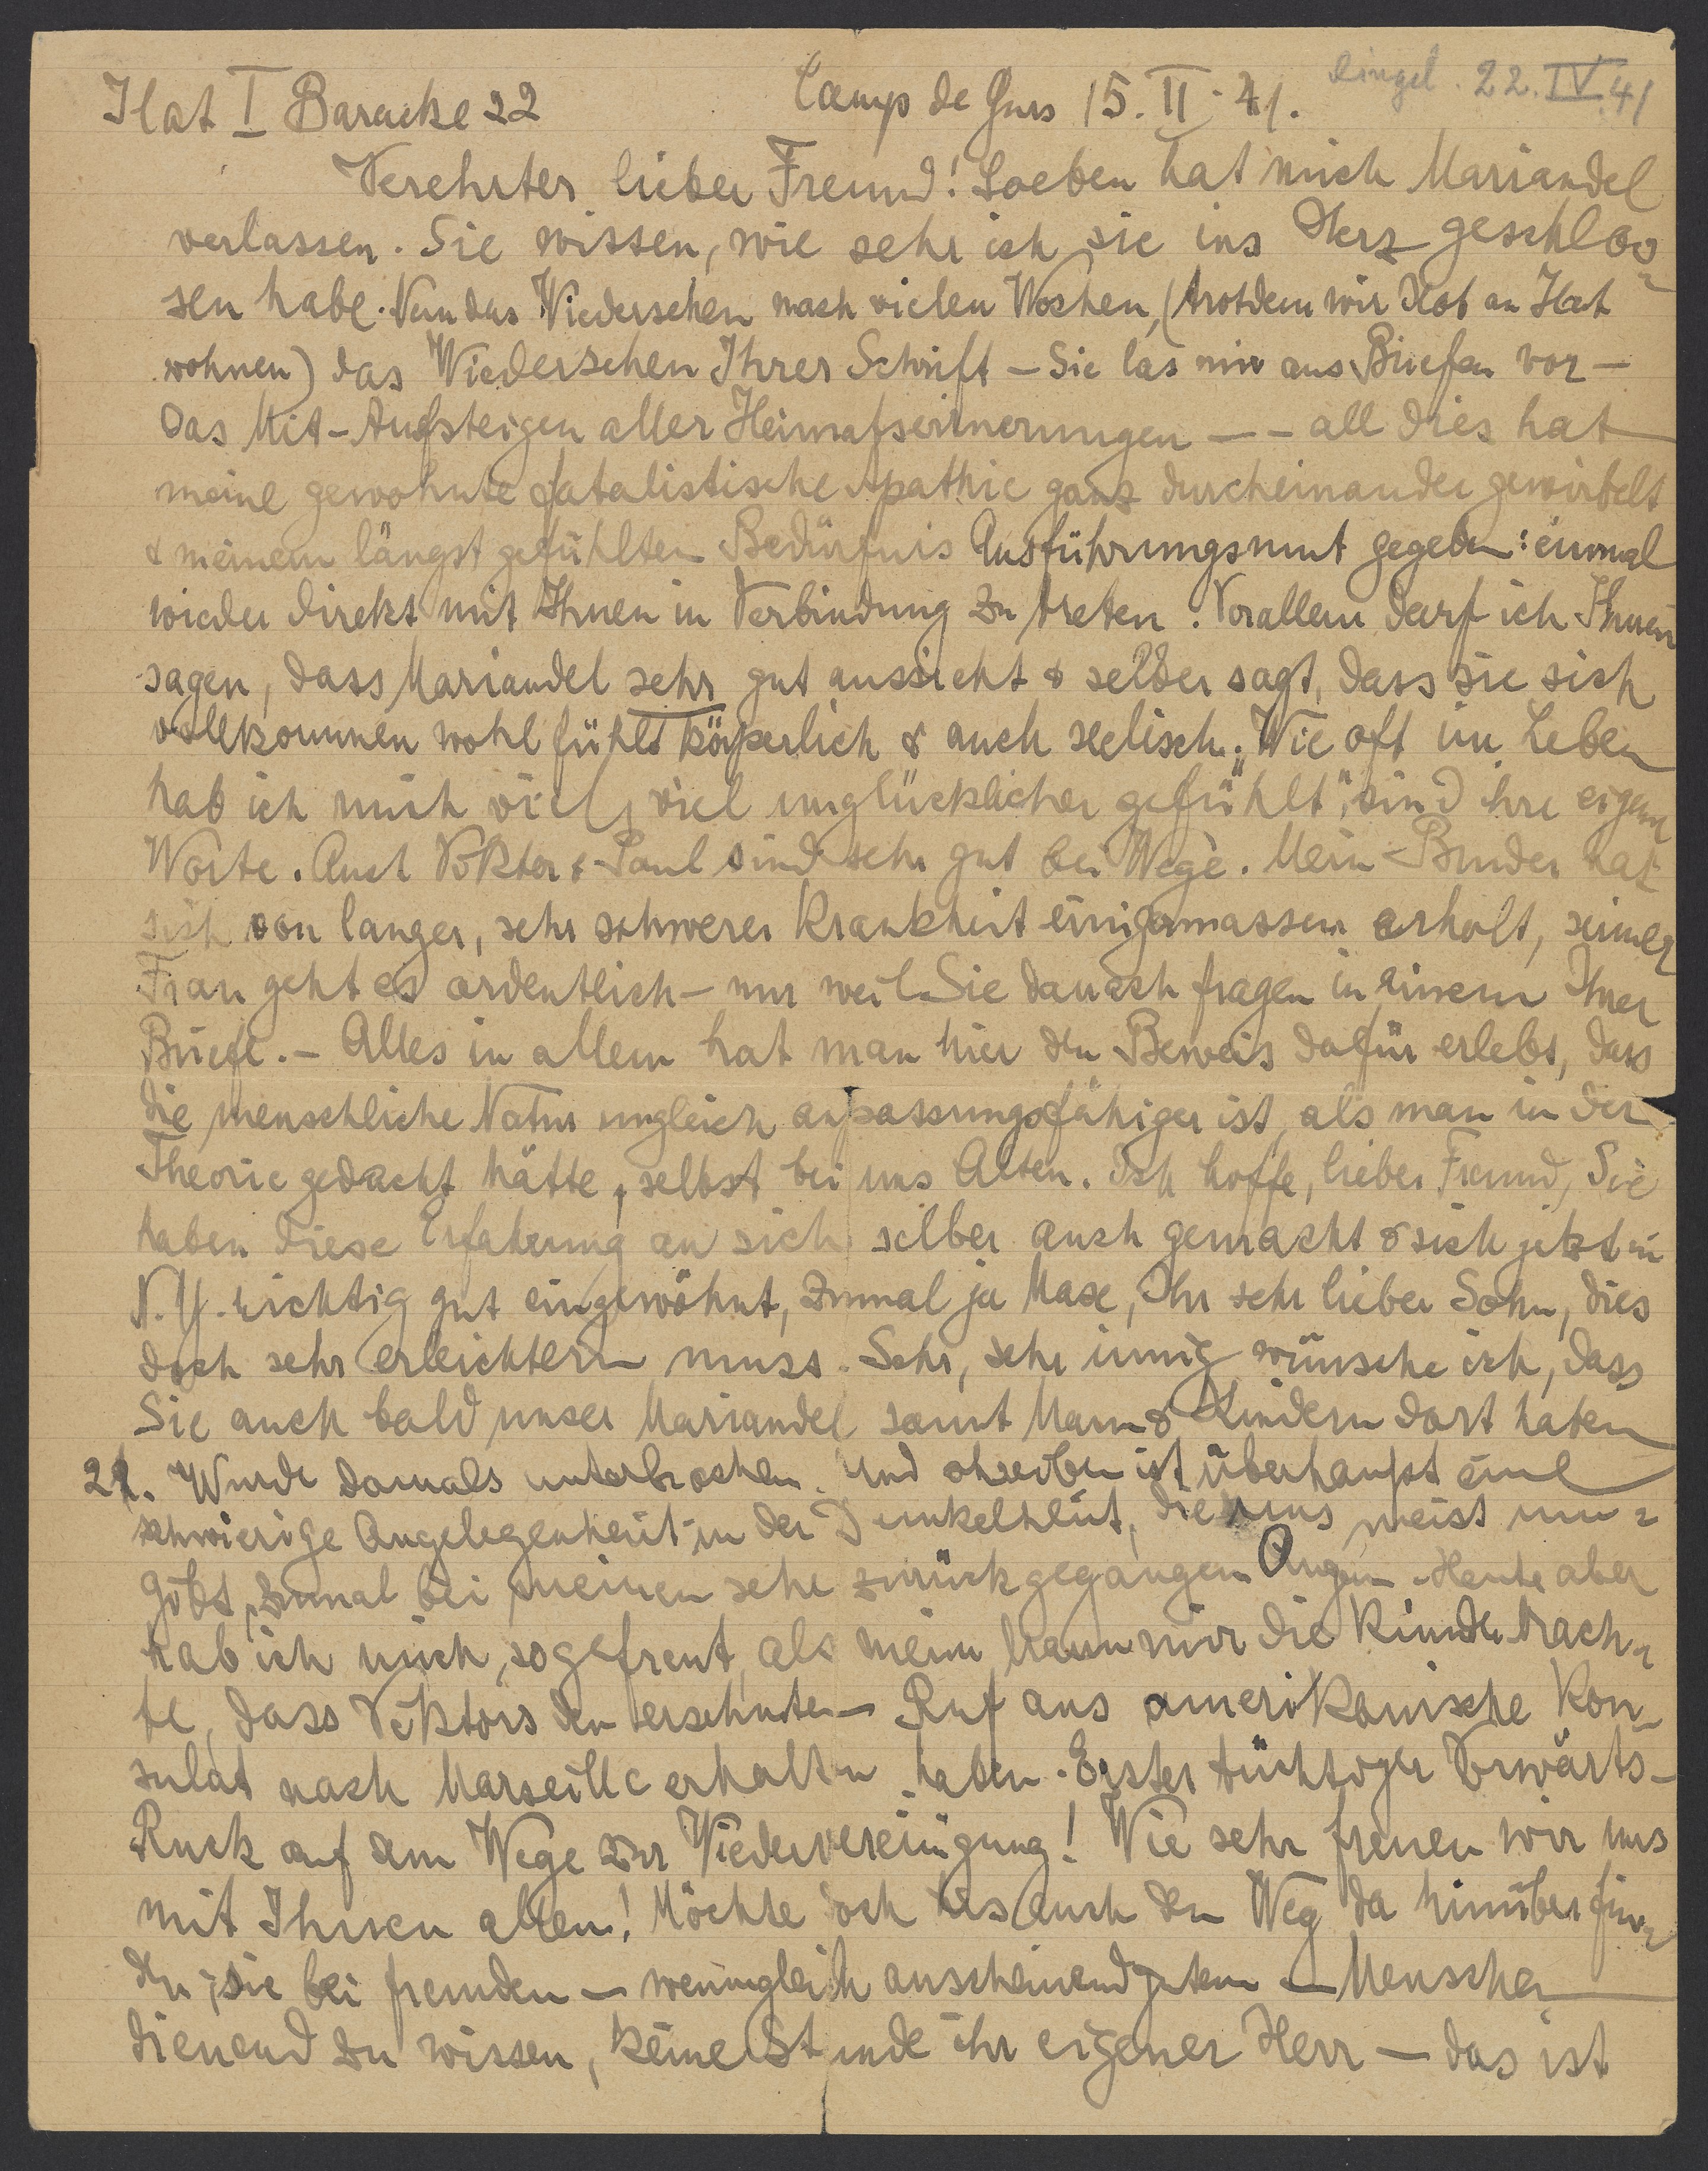 Ilot I Baracke 22 Camp de Gurs 15. II. 41. eingel. 22. IV. 41
Verehrter lieber Freund! Soeben hat mich Mariandel
verlassen. Sie wissen, wie sehr ich sie ins Herz geschlos=
sen habe. Nun das Wiedersehen nach vielen Wochen, (trotdem wir Ilot an Ilot
wohnen) das Wiedersehen Ihrer Schrift – Sie las mir aus Briefen vor –
Das Mit-Aufsteigen aller Heimatserinnerungen – – all dies hat
meine gewohnte fatalistische Apathie ganz durcheinander gewirbelt
& meinem längst gefühlten Bedürfnis Ausführungsmut gegeben: einmal
wieder direkt mit Ihnen in Verbindung zu treten. Vorallem darf ich Ihnen
sagen, dass Mariandel sehr gut aussieht & selber sagt, dass sie sich
vollkommen wohl fühlt körperlich & auch seelisch. „Wie oft im Leben
hab ich mich viel, viel unglücklicher gefühlt", sind ihre eigene
Worte. Auch Viktor & Paul sind sehr gut bei Wege. Mein Bruder hat
sich von langer, sehr schwerer Krankheit einigermassen erholt, seiner
Frau geht es ordentlich – nur weil Sie danach fragen in einem Ihrer
Briefe. – Alles in allem hat man hier den Beweis dafür erlebt, dass
die menschliche Natur ungleich anpassungsfähiger ist, als man in der
Theorie gedacht hätte, selbst bei uns Alten. Ich hoffe, lieber Freund, Sie
haben diese Erfahrung an sich selber auch gemacht & sich jetzt in
N.Y. richtig gut eingewöhnt, zumal ja Maxe, Ihr sehr lieber Sohn, dies
doch sehr erleichtern muss. Sehr, sehr innig wünsche ich, dass
Sie auch bald unser Mariandel samt Mann & Kindern dort haben
22. Wurde damals unterbrochen. Und schreiben ist überhaupt eine
schwierige Angelegenheit in der Dunkelheit, die uns meist um=
gibt, zumal bei meinen sehr zurückgegangen Augen. Heute aber
hab ich mich so gefreut, als mein Mann mir die Kunde brach=
te, dass Viktors den ersehnten Ruf aus amerikanische Kon=
sulat nach Marseille erhalten haben. Erster tüchtiger Vorwärts-
Ruck auf dem Wege zur Wiedervereinigung! Wie sehr freuen wir uns
mit Ihnen allen! Möchte doch auch den Weg da hinüber fin=
den; sie bei fremden – wenngleich anscheinend guten – Menschen
dienend zu wissen, keine Stunde ihr eigener Herr – das ist